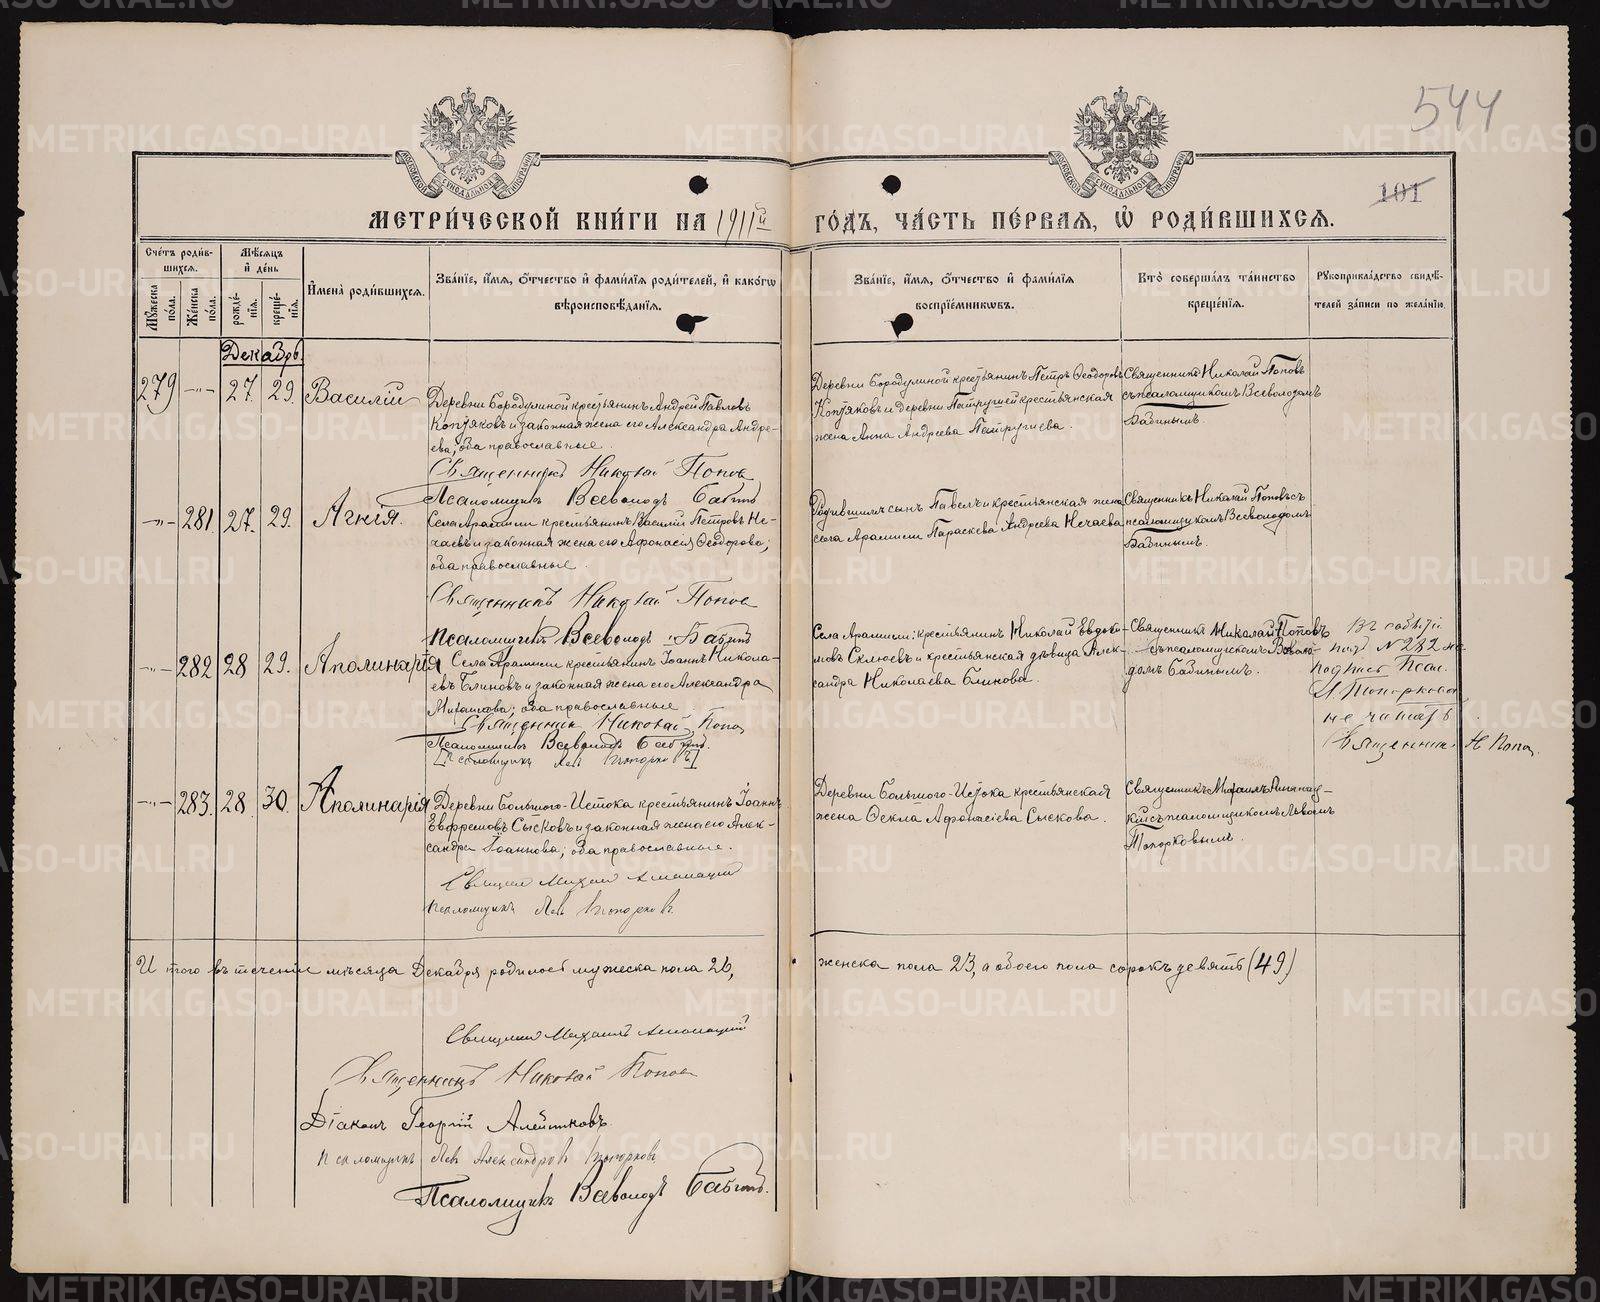 544
101
МЕТРИ́ЧЕСКОЙ КНИ́ГИ НА 1911й ГО́ДЪ, ЧА́СТЬ ПЕ́РВАЯ, Ѡ РОДИ́ВШИХСЯ.
Счетъ роди́вшихся.
Мꙋ́жеска по́ла.
Же́нска по́ла.
Мѣсяцъ и де́нь
рожде́нїя.
креще́нїя.
И́мена роди́вшихся.
Зва́нїе, и́мя, о́тчество и фами́лїя роди́телей, и како́гѡ вѣроисповѣ́данїя.
Зва́нїе, и́мя, о́тчество и фами́лїя воспрїе́мникѡвъ.
Кто̀ соверша́лъ та́инство креще́нїя.
Рꙋкоприкла́дство свидѣ́телей за́писи по жела́нїю.
Декабрь.
279 -"- 27. 29. Василій
Деревни Бородулиной крестьянинъ Андрей Павловъ
Копяковъ и законная жена его Александра Андре-
ева, оба православные.
Священникъ Николай Попов
Псаломщикъ Всеволодъ Бабинъ
Деревни Бородулиной крестьянинъ Петръ Ѳеодоровъ
Копяковъ и деревни Патрушей крестьянская
жена Анна Андреева Патрушева.
Священникъ Николай Поповъ
съ псаломщикомъ Всеволодомъ
Бабинымъ.
-"- 281. 27. 29. Агнія.
Села Арамили крестьянинъ Василій Петровъ Не-
чаевъ и законная жена его Афонасія Ѳеодорова;
оба православные.
Священникъ Николай Попов
Псаломщикъ Всеволодъ Бабинъ
Родившихъ сынъ Павелъ и крестьянская жена
села Арамили Параскева Андреева Нечаева
Священникъ Николай Поповъ съ
псаломщикомъ Всеволодомъ
Бабинымъ.
-"- 282 28 29. Аполинарія
Села Арамили крестьянинъ Іоаннъ Никола-
евъ Блиновъ и законная жена его Александра
Михаилова; оба православные.
Священник Николай Попов
Псаломщикъ Всеволодъ Бабинъ.
[Псаломщикъ Лев Топорковъ]
Села Арамили: крестьянинъ Николай Евдоки-
мовъ Склюевъ и крестьянская дѣвица Алек-
сандра Николаева Блинова.
Священникъ Николай Поповъ
съ псаломщикомъ Всеволо-
домъ Бабинымъ.
под № 282 м.
подпись Псал.
Л Топоркова
не читать.
Священник Н Попов.
-"- 283. 28. 30. Аполинарія
Деревни Большого-Истока крестьянинъ Іоаннъ
Евфремовъ Сысковъ и законная жена его Алек-
сандра Іоаннова; оба православные.
Псаломщикъ Лев Топорков.
Деревни Большого-Истока крестьянская
жена Ѳекла Афонасіева Сыскова.
Священникъ Михаилъ
съ псаломщикомъ Львомъ
Топорковымъ.
И того въ теченіи мѣсяца Декабря родилось мужеска пола 26, женска пола 23, а обоего пола сорокъ девять (49)
Священникъ Николай Попов
Діаконъ Георгій
Псаломщикъ Лев Александров Топорковъ
Псаломщикъ Всеволодъ Бабинъ.
METRIKI.GASO-URAL.RU